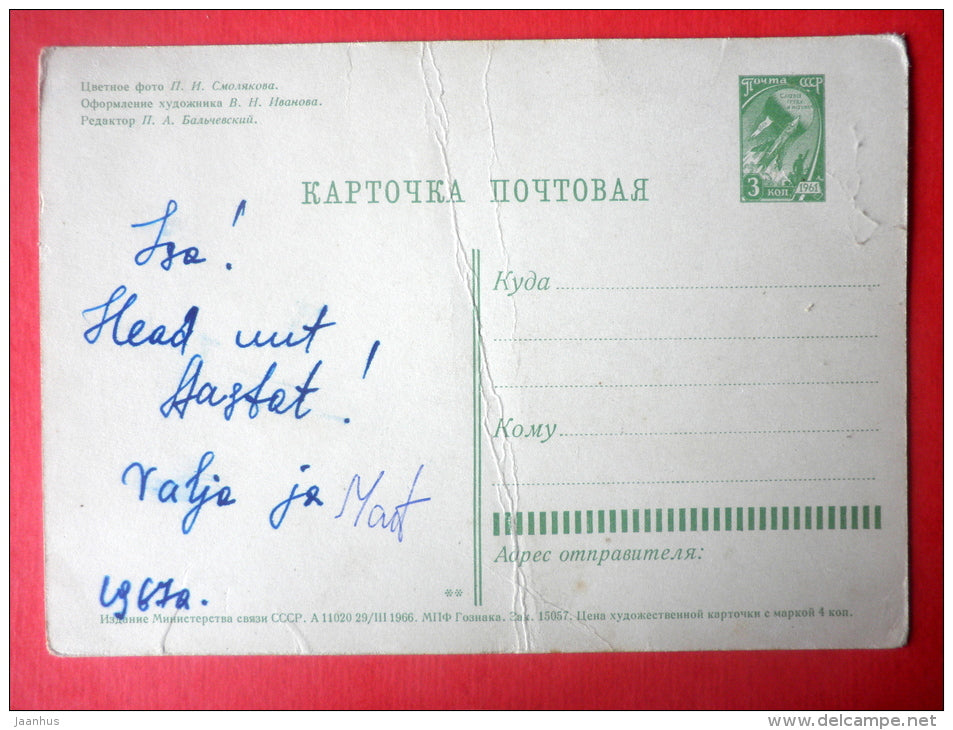 Цветное фото П. И. Смолякова.
Оформление художника В. Н. Иванова.
Редактор П. А. Бальчевский.
Почта СССР
3 коп
1961
КАРТОЧКА ПОЧТОВАЯ
Head uut
Aastat!
Valja ja Mat
1967a.
Куда
Кому
Адрес отправителя:
**
Издание Министерства связи СССР. А 11020 29/III 1966. МПФ Гознака. Зак. 15057. Цена художественной карточки с маркой 4 коп.
Jaanhus
www.delcampe.net